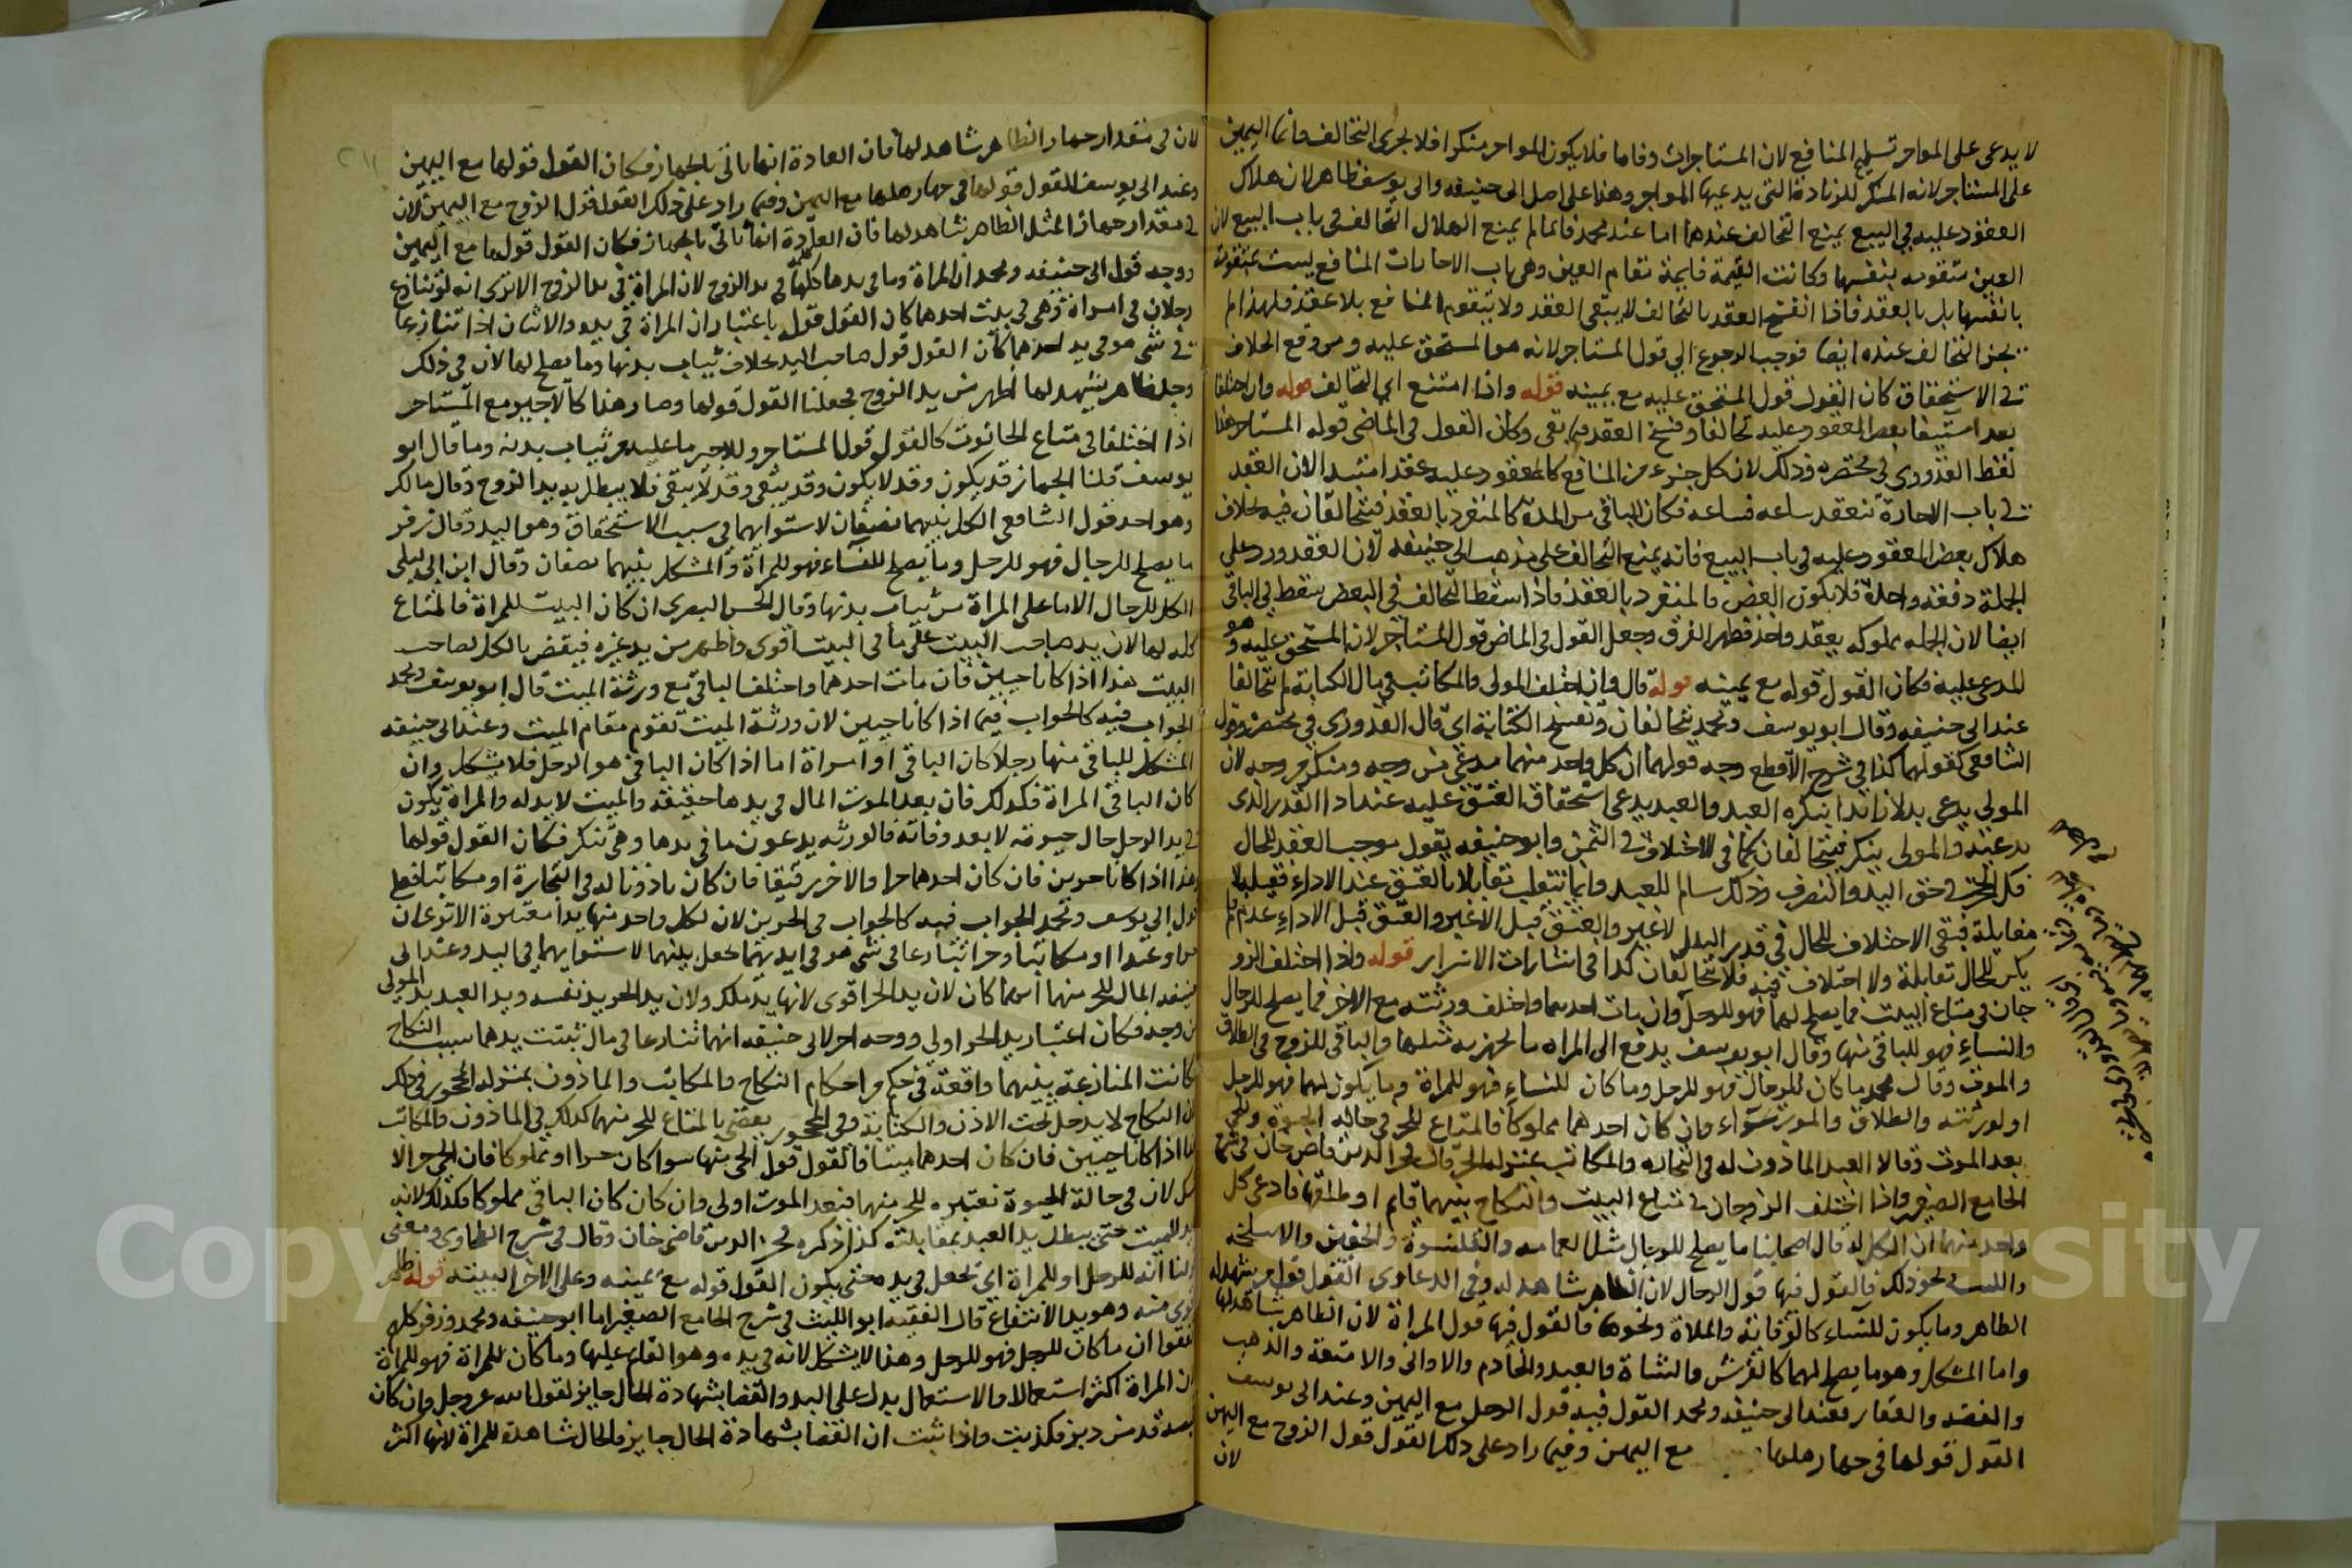 لا يدعى على المواجر تسليم المنافع لان المستاجر استوفاها فلا يكون المواجر منكرا فلا يجرى التحالف وانما اليمين
على المستاجر لانه المنكر للزيادة التى يدعيها المواجر وهذا على اصل ابى حنيفه وابى يوسف ظاهر لان هلاك
العقود عليه في البيع يمنع التحالف عندهما اما عند محمد فانما لم يمنع الهلاك التحالف في باب البيع لان
العين متقومه بنفسها وكانت القيمة قايمة مقام العين وفي باب الاجارات المنافع ليست بمتقومة
بانفسها بل بالعقد فاذا انفسخ العقد بالتحالف لا يبقى العقد ولا تتقوم المنافع بلا عقد فلهذا لم
يجز التحالف عنده ايضا فوجب الرجوع الى قول المستاجر لانه هو المستحق عليه ومتى وقع الخلاف
في الاستحقاق كان القول قول المستحق عليه مع يمينه قوله واذا امتنع اي التحالف قوله وان اختلفا
بعد استيفا بعض المعقود عليه تحالفا وفسخ العقد فيما بقى وكان القول في الماضى قوله المستاجر هذا
لفظ القدوري في مختصره وذلك لان كل جزء من المنافع كالمعقود عليه عقدا مبتدا لان العقد
في باب الاجارة تنعقد ساعه فساعه فكان الباقي من المدة كالمنفرد بالعقد فيتحالفان فيه بخلاف
هلاك بعض المعقود عليه في باب البيع فانه يمنع التحالف على مذهب ابى حنيفه لان العقد ورد على
الجملة دفعة واحدة فلا يكون البعض كالمنفرد بالعقد فاذا سقط التحالف في البعض سقط في الباقي
ايضا لان الجمله مملوكه بعقد واحد فظهر الفرق وجعل القول في الماضى قول المستاجر لان المستحق عليه وهو
المدعى عليه فكان القول قوله مع يمينه قوله قال وان اختلف المولى والمكاتب في مال الكتابة لم يتحالفا
عند ابى حنيفه وقال ابو يوسف ومحمد يتحالفان وتفسخ الكتابة اي قال القدوري في مختصره وقول
الشافعي كقولهما كذا في شرح الاقطع وجه قولهما ان كل واحد منهما مدعى من وجه ومنكر من وجه لان
المولى يدعى بدلا زائدا ينكره العبد والعبد يدعى استحقاق العتق عليه عند ادا القدر الذى
يدعيه والمولى ينكر فيتحالفان كما في الاختلاف في الثمن وابو حنيفه يقول موجب العقد للحال
فك الحجر في حق اليد والتصرف وذلك سالم للعبد وانما ينقلب مقابلا بالعتق عند الاداء فقبله لا
مقابلة فبقى الاختلاف للحال في قدر البدل لا غير والعتق قبل الاداء عدم فلم
يكن للحال مقابلة ولا اختلاف فيه فلا يتحالفان كذا في اشارات الاسرار قوله واذا اختلف الزو
جان في متاع البيت فما يصلح لهما فهو للرجل وان مات احدهما واختلف ورثته مع الاخر فما يصلح للرجال
والنساء فهو للباقي منهما وقال ابو يوسف يدفع الى المراه ما يجهز به مثلها والباقي للزوج في الطلاق
والموت وقال محمد ما كان للرجال فهو للرجل وما كان للنساء فهو للمراة وما يكون لهما فهو للرجل
او لورثته والطلاق والموت سواء وان كان احدهما مملوكا فالمتاع للحر في حاله الحيوة وللحي
بعد الموت وقالا العبد الماذون له في التجاره والمكاتب بمنزله الحر قال فخر الدين قاضى خان في شرح
الجامع الصغير واذا اختلف الزوجان في متاع البيت والنكاح بينهما قايم او طلقها فادعى كل
واحد منهما ان الكل له قال اصحابنا ما يصلح للرجال مثل العمامه والقلنسوة والخفين والاسلحه
ونحو ذلك فالقول فيها قول الرجال لان الظاهر شاهد له وفي الدعاوى القول قول من يشهد له
الظاهر وما يكون للنساء كالوقاية والملاة ونحوها فالقول فيها قول المراة لان الظاهر شاهد لها
واما المشكل وهو ما يصلح لهما كالفرش والشاة والعبد والخادم والاوانى والامتعة والذهب
والفضه والعقار فعند ابى حنيفه ومحمد القول فيه قول الرجل مع اليمين وعند ابى يوسف
القول قولها في جهاز مثلها مع اليمين وفيما زاد على ذلك القول قول الزوج مع اليمين
لان
لان في مقدار جهاز الظاهر شاهد لها فان العادة انها تاتى بالجهاز فكان القول قولها مع اليمين
وعند ابى يوسف القول قولها في جهاز مثلها مع اليمين وفيما زاد على ذلك القول قول الزوج مع اليمين لان
في مقدار جهاز المثل الظاهر شاهد لها فان العادة انها تاتى بالجهاز فكان القول قولها مع اليمين
ووجه قول ابى حنيفه ومحمد ان المراة وما في يدها كلها في يد الزوج لان المراة في يد الزوج الا ترى انه لو تنازع
رجلان في امراة وهي في بيت احدهما كان القول قوله باعتبار ان المراة في يده والاثنان اذا تنازعا
في شى هو في يد احدهما كان القول قول صاحب اليد بخلاف ثياب بدنها وما يصلح لها لان في ذلك
وجد ظاهر يشهد لها اظهر من يد الزوج فجعلنا القول قولها وصار هذا كالاجير مع المستاجر
اذا اختلفا في متاع الحانوت كالقول قول المستاجر وللاجير ما عليه من ثياب بدنه وما قال ابو
يوسف قلنا الجهاز قد يكون وقد لا يكون وقد يبقى وقد لا يبقى فلا يبطل به يد الزوج وقال مالك
وهو احد قول الشافعي الكل بينهما نصفان لاستوايهما في سبب الاستحقاق وهو اليد وقال زفر
ما يصلح للرجال فهو للرجل وما يصلح للنساء فهو للمراة والمشكل بينهما نصفان وقال ابن ابى ليلى
الكل للرجال الا ما على المراة من ثياب بدنها وقال الحسن البصرى ان كان البيت للمراة فالمتاع
كله لها لان يد صاحب البيت على ما في البيت اقوى واظهر من يد غيره فيقضى بالكل لصاحب
البيت هذا اذا كانا حيين فان مات احدهما واختلف الباقي مع ورثة الميت قال ابو يوسف ومحمد
الجواب فيه كالجواب فيما اذا كانا حيين لان ورثة الميت تقوم مقام الميت وعند ابى حنيفه
المشكل للباقي منهما رجلا كان الباقي او امراة اما اذا كان الباقي هو الرجل فلا يشكل وان
كان الباقي المراة فكذلك فان بعد الموت المال في يدها حقيقة والميت لا يد له والمراة يكون
في يد الرجل حال حيوته لا بعد وفاته فالورثه يدعون ما في يدها وهي تنكر فكان القول قولها
هذا اذا كانا حرين فان كان احدهما حرا والاخر رقيقا فان كان ماذونا له في التجارة او مكاتبا فعلى
قول ابى يوسف ومحمد الجواب فيه كالجواب في الحرين لان لكل واحد منهما يدا معتبرة الا ترى ان
حرا وعبدا او مكاتبا وحرا تنازعا في شى هو في ايديهما يجعل بينهما لاستوايهما في اليد وعند ابى
حنيفه المال للحر منهما ايهما كان لان يد الحر اقوى لانها يد ملك ولان يد الحر يد نفسه ويد العبد يد المولى
من وجه فكان اعتبار يد الحر اولى ووجه اخر لابى حنيفه انهما تنازعا في مال تثبت يدهما بسبب النكاح
كانت المنازعة بينهما واقعة في حكم من احكام النكاح والمكاتب والماذون بمنزله المحجور في ذلك
لان النكاح لا يدخل تحت الاذن والكتابة وفي المحجور يقضى بالمتاع للحر منهما كذلك في الماذون والمكاتب
اما اذا كانا حيين فان كان احدهما ميتا فالقول قول الحى منهما سوا كان حرا او مملوكا فان الحى حرا لا
يشكل لان في حالة الحيوة نعتبره للحر منهما فبعد الموت اولى وان كان الباقي مملوكا فكذلك لانه
لا يد للميت حتى يبطل يد العبد بمقابلته كذا ذكره فخر الدين قاضى خان وقال في شرح الطحاوى ومعنى
قولنا انه للرجل او للمراة اي تجعل في يده حتى يكون القول قوله مع يمينه وعلى الاخر البينه قوله
منه وهو يد الانتفاع قال الفقيه ابو الليث في شرح الجامع الصغير اما ابو حنيفه ومحمد وزفر كلهم
اتفقوا ان ما كان للرجل فهو للرجل وهذا لا يشكل لانه في يده وهو القايم عليها وما كان للمراة فهو للمراة
لان المراة اكثر استعمالا والاستعمال يدل على اليد والقضا بشهادة الحال جايز لقول الله عز وجل وان كان
قميصه قد من دبر فكذبت واذا ثبت ان القضا بشهادة الحال جايز والحال شاهدة للمراة لانها اكثر
Copy University